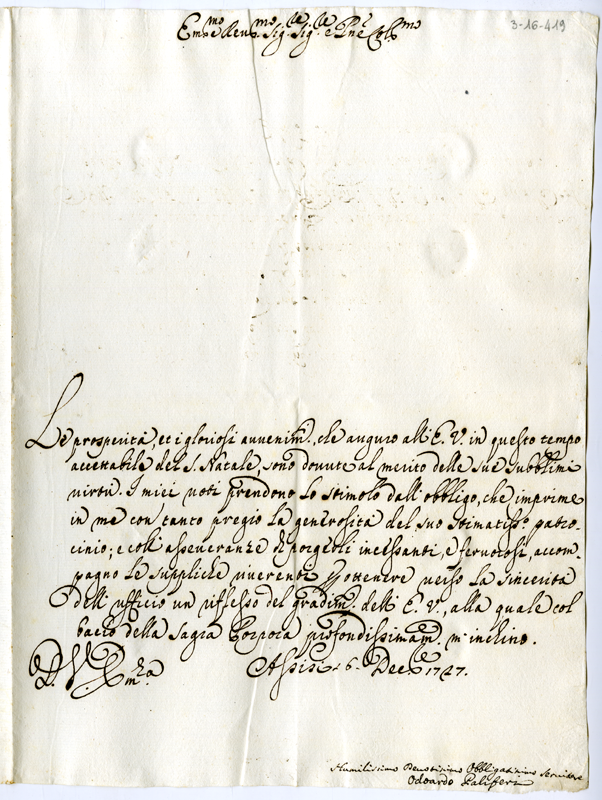 3-16-419
Em.mo e Reu.mo Sig.re Sig.re e Pne Col.mo
Le prosperità, et i gloriosi auuenim.ti che auguro all'E. V. in questo tempo
accettabile del S. Natale, sono douute al merito delle sue subblimi
uirtù. I miei uoti prendono lo stimolo dall'obbligo, che imprime
in me con tanto pregio la generosità del suo stimatiss.o patro-
cinio; e coll'asseueranze di porgeoli incessanti, e feruorosi, accom-
pagno le suppliche riuerenti ottenere uerso la sincerità
dell'ufficio un riflesso del gradim.to dell'E. V., alla quale col
bacio della Sagra Porpora profondissimam.e m'inchino.
D. V. Em.za Assisi 16 Dec.e 1727.
Humilissimo Deuotisimo Obbligatisimo Seruitore
Odoardo Paliferi